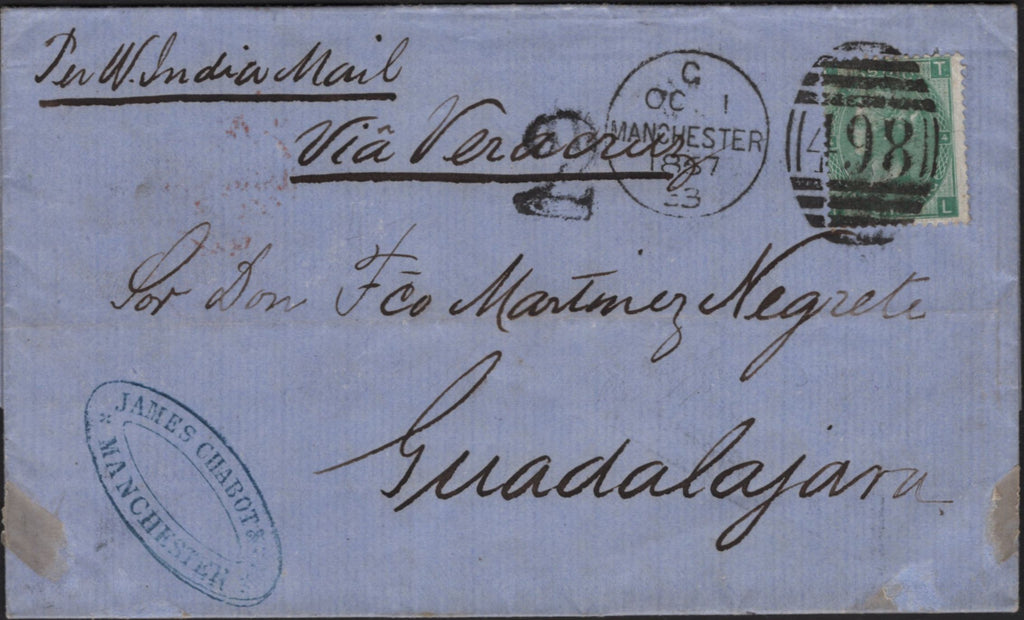 Per W. India Mail
Viâ Veracruz
G
OC 1
MANCHESTER
1867
498
T
L
Sor Don Fco Martinez Negrete
Guadalajara
JAMES CHABOT &
MANCHESTER